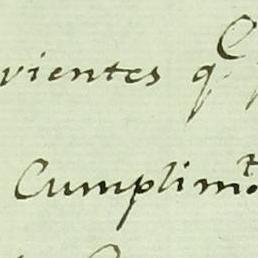 vientes q
Cumplim.to